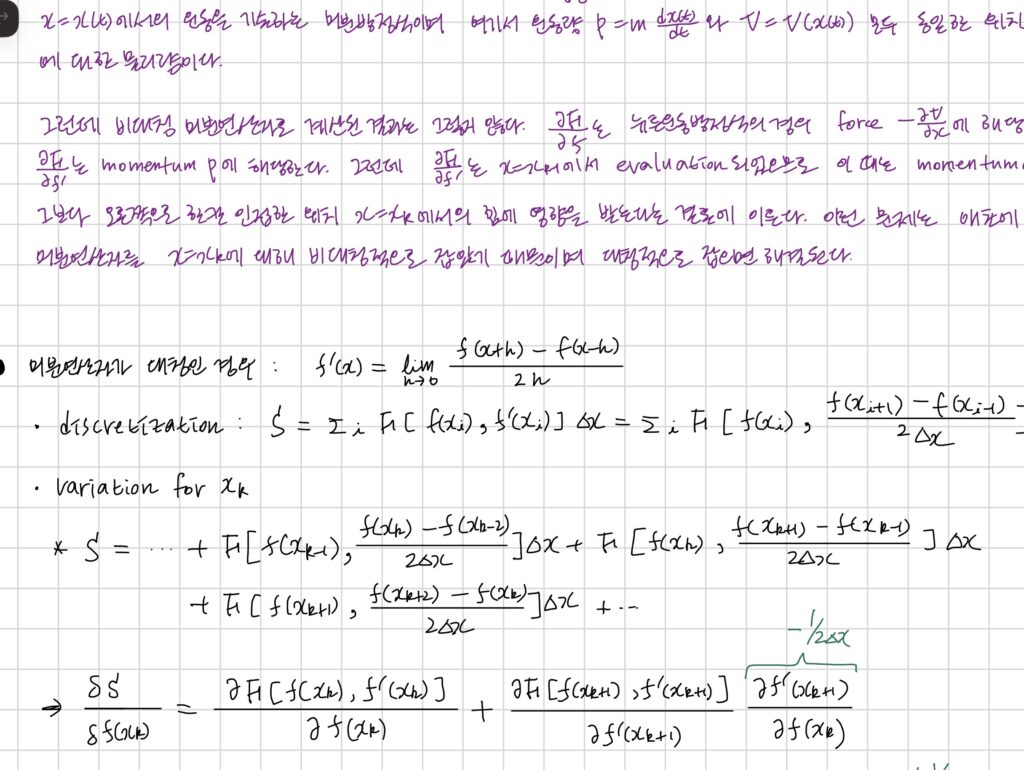 x=x(t)에서의 운동을 기술하는 미분방정식이며 여기서 운동량 p=m dx(t)/dt 와 V=V(x(t)) 모두 동일한 위치
에 대한 물리량이다.
그런데 비대칭 미분연산자로 계산된 결과는 그렇지 않다. ∂F/∂f 는 뉴튼운동방정식의 경우 force -∂V/∂x 에 해당
∂F/∂f' 는 momentum p에 해당한다. 그런데 ∂F/∂f' 는 x=x_{k-1}에서 evaluation 되었으므로 이 때는 momentum
그보다 오른쪽으로 한칸 인접한 위치 x=x_k에서의 힘에 영향을 받는다는 결론에 이른다. 이런 문제는 애초에
미분연산자를 x=x_k에 대해 비대칭적으로 잡았기 때문이며 대칭적으로 잡으면 해결된다.
미분연산자가 대칭인 경우 : f'(x) = lim_{h→0} (f(x+h) - f(x-h))/2h
· discretization : S = Σ_i F[f(x_i), f'(x_i)] Δx = Σ_i F[f(x_i), (f(x_{i+1}) - f(x_{i-1}))/2Δx
· variation for x_k
* S = ··· + F[f(x_{k-1}), (f(x_k) - f(x_{k-2}))/2Δx]Δx + F[f(x_k), (f(x_{k+1}) - f(x_{k-1}))/2Δx]Δx
+ F[f(x_{k+1}), (f(x_{k+2}) - f(x_k))/2Δx]Δx + ···
-1/2Δx
→ δS/δf(x_k) = ∂F[f(x_k), f'(x_k)]/∂f(x_k) + ∂F[f(x_{k+1}), f'(x_{k+1})]/∂f'(x_{k+1}) ∂f'(x_{k+1})/∂f(x_k)